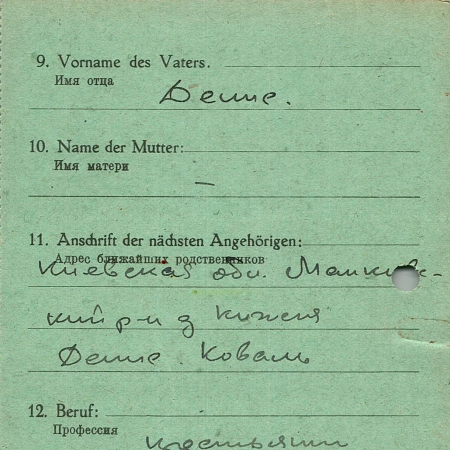 9. Vorname des Vaters.
Имя отца
Демие.
10. Name der Mutter:
Имя матери
–
11. Anschrift der nächsten Angehörigen:
Адрес ближайших родственников
Киевская обл. Маньков-
кий р-н д Кижея
Демие. Коваль
12. Beruf:
Профессия
крестьянин